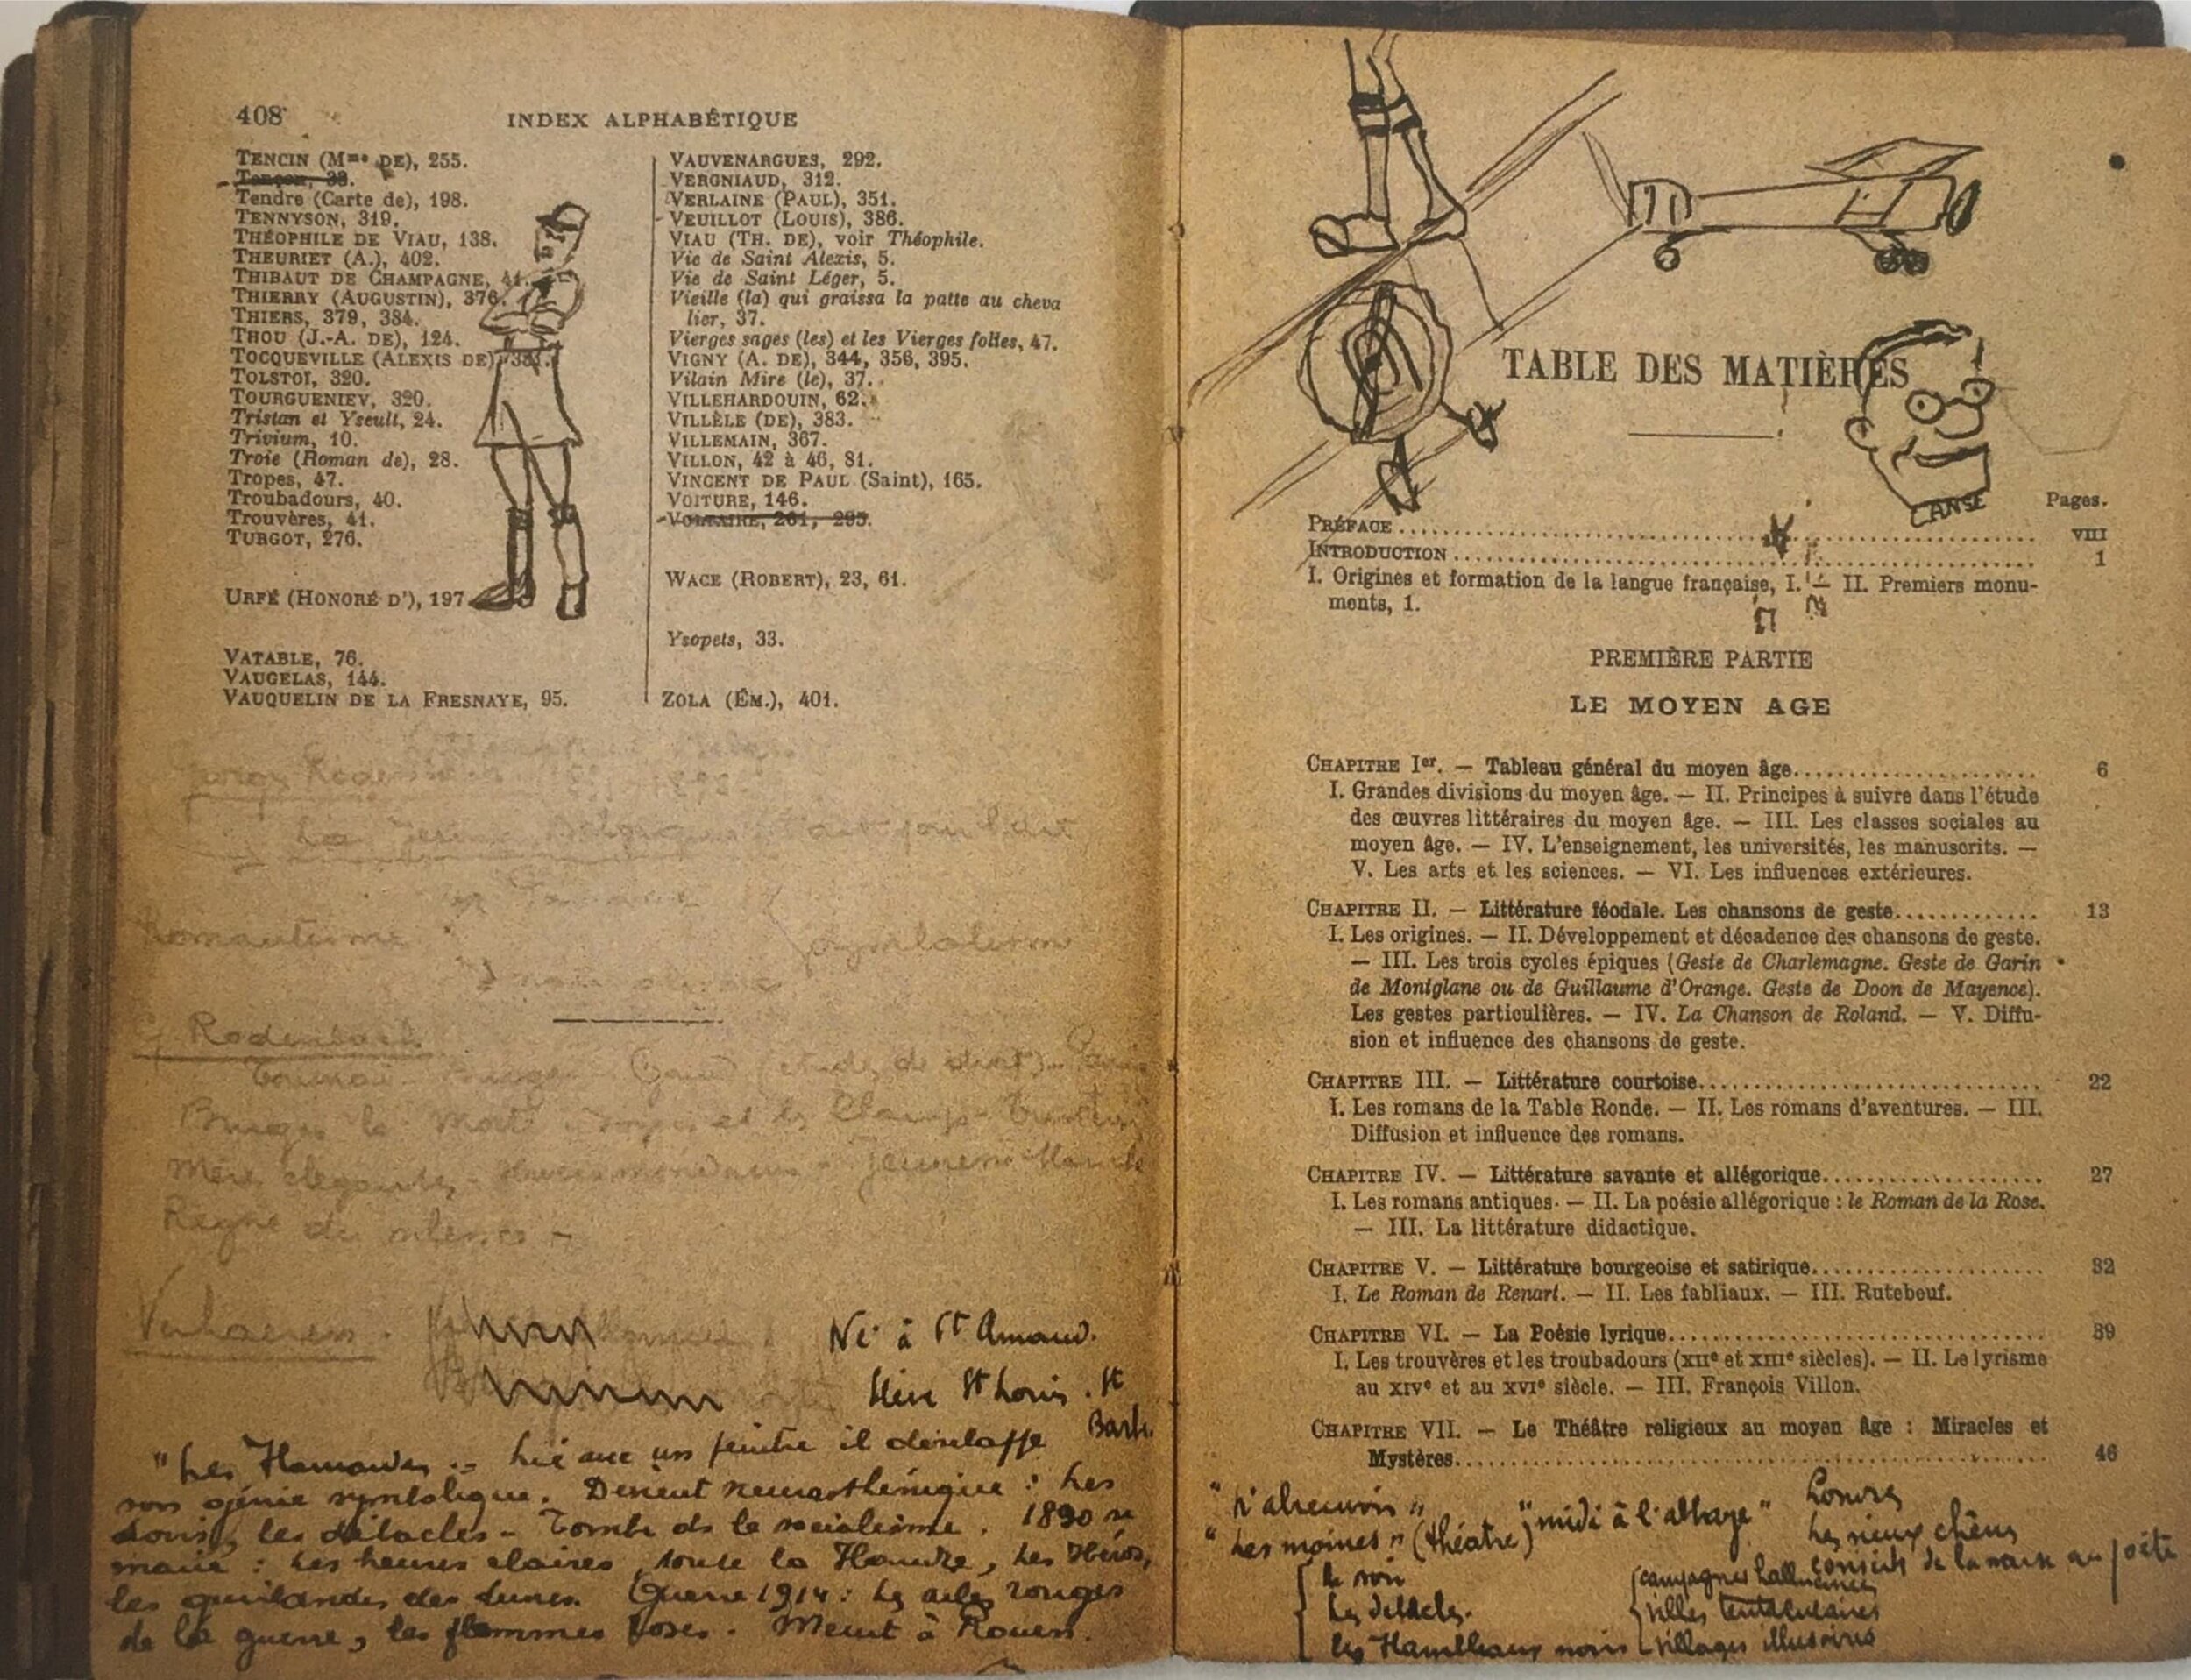 408
INDEX ALPHABÉTIQUE
TENCIN (Mme DE), 255.
Tençon, 38.
Tendre (Carte de), 198.
TENNYSON, 319.
THÉOPHILE DE VIAU, 138.
THEURIET (A.), 402.
THIBAUT DE CHAMPAGNE, 41.
THIERRY (AUGUSTIN), 376.
THIERS, 379, 384.
THOU (J.-A. DE), 124.
TOCQUEVILLE (ALEXIS DE), 381.
TOLSTOÏ, 320.
TOURGUENIEV, 320.
Tristan et Yseult, 24.
Trivium, 10.
Troie (Roman de), 28.
Tropes, 47.
Troubadours, 40.
Trouvères, 41.
TURGOT, 276.
URFÉ (HONORÉ D'), 197
VATABLE, 76.
VAUGELAS, 144.
VAUQUELIN DE LA FRESNAYE, 95.
VAUVENARGUES, 292.
VERGNIAUD, 312.
VERLAINE (PAUL), 351.
VEUILLOT (LOUIS), 386.
VIAU (TH. DE), voir Théophile.
Vie de Saint Alexis, 5.
Vie de Saint Léger, 5.
Vieille (la) qui graissa la patte au cheva
lier, 37.
Vierges sages (les) et les Vierges folles, 47.
VIGNY (A. DE), 344, 356, 395.
Vilain Mire (le), 37.
VILLEHARDOUIN, 62.
VILLÈLE (DE), 383.
VILLEMAIN, 367.
VILLON, 42 à 46, 81.
VINCENT DE PAUL (Saint), 165.
VOITURE, 146.
VOLTAIRE, 261, 295.
WACE (ROBERT), 23, 61.
Ysopets, 33.
ZOLA (ÉM.), 401.
La Jeune Belgique l'art pour l'art
Romantisme
Symbolisme
G. Rodenbach
Tournai Gand (études de droit) - Paris
Bruges la Morte
Règne du silence -
Verhaeren.
Né à St Amand.
élève St Louis. St
Barbe
"Les Flamandes - Lié avec un peintre il développe
son génie symbolique. Devient neurasthénique : Les
soirs, les débacles - Tombe ds le socialisme. 1890 se
marie : Les heures claires, toute la Flandre, Les Héros,
les guirlandes des dunes. Guerre 1914 : Les ailes rouges
de la guerre, les flammes hautes. Meurt à Rouen.
TABLE DES MATIÈRES
Pages.
PRÉFACE VIII
INTRODUCTION 1
I. Origines et formation de la langue française, I. — II. Premiers monu-
ments, 1.
PREMIÈRE PARTIE
LE MOYEN AGE
CHAPITRE Ier. — Tableau général du moyen âge 6
I. Grandes divisions du moyen âge. — II. Principes à suivre dans l'étude
des œuvres littéraires du moyen âge. — III. Les classes sociales au
moyen âge. — IV. L'enseignement, les universités, les manuscrits. —
V. Les arts et les sciences. — VI. Les influences extérieures.
CHAPITRE II. — Littérature féodale. Les chansons de geste 13
I. Les origines. — II. Développement et décadence des chansons de geste.
— III. Les trois cycles épiques (Geste de Charlemagne. Geste de Garin
de Montglane ou de Guillaume d'Orange. Geste de Doon de Mayence).
Les gestes particulières. — IV. La Chanson de Roland. — V. Diffu-
sion et influence des chansons de geste.
CHAPITRE III. — Littérature courtoise 22
I. Les romans de la Table Ronde. — II. Les romans d'aventures. — III.
Diffusion et influence des romans.
CHAPITRE IV. — Littérature savante et allégorique 27
I. Les romans antiques. — II. La poésie allégorique : le Roman de la Rose.
— III. La littérature didactique.
CHAPITRE V. — Littérature bourgeoise et satirique 32
I. Le Roman de Renart. — II. Les fabliaux. — III. Rutebeuf.
CHAPITRE VI. — La Poésie lyrique 39
I. Les trouvères et les troubadours (XIIe et XIIIe siècles). — II. Le lyrisme
au XIVe et au XVIe siècle. — III. François Villon.
CHAPITRE VII. — Le Théâtre religieux au moyen âge : Miracles et
Mystères 46
"L'abreuvoir"
"Les moines" (théatre) "midi à l'abbaye"
Londres
Les vieux chênes
conseils de la au poète
le soir
les débacles.
les flambeaux noirs
campagnes hallucinées
villes tentaculaires
villages illusoires